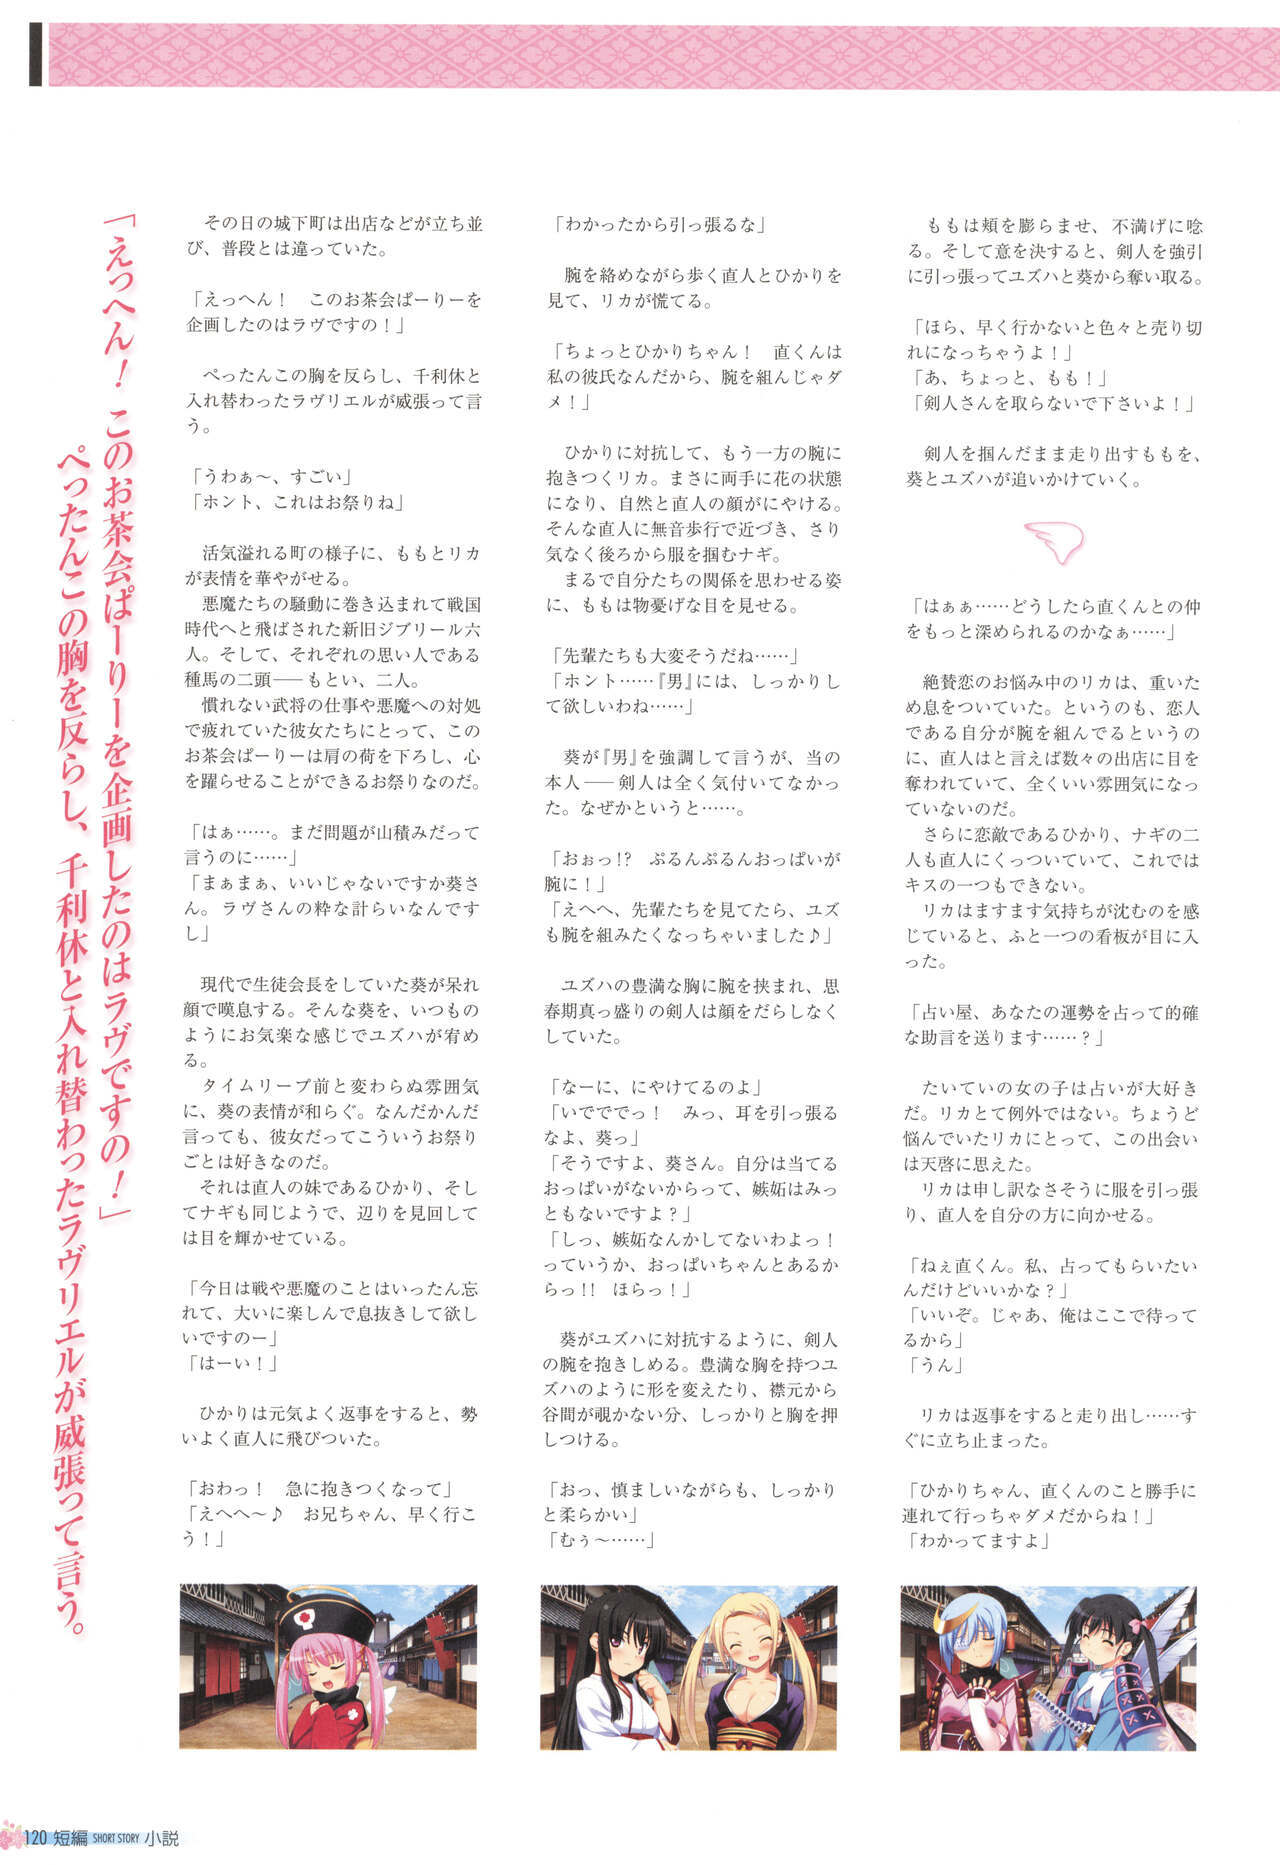 「えっへん！　このお茶会ぱーりーを企画したのはラヴですの！」
ぺったんこの胸を反らし、千利休と入れ替わったラヴリエルが威張って言う。
　その日の城下町は出店などが立ち並
び、普段とは違っていた。
「えっへん！　このお茶会ぱーりーを
企画したのはラヴですの！」
　ぺったんこの胸を反らし、千利休と
入れ替わったラヴリエルが威張って言
う。
「うわぁ～、すごい」
「ホント、これはお祭りね」
　活気溢れる町の様子に、ももとリカ
が表情を華やがせる。
　悪魔たちの騒動に巻き込まれて戦国
時代へと飛ばされた新旧ジブリール六
人。そして、それぞれの思い人である
種馬の二頭――もとい、二人。
　慣れない武将の仕事や悪魔への対処
で疲れていた彼女たちにとって、この
お茶会ぱーりーは肩の荷を下ろし、心
を躍らせることができるお祭りなのだ。
「はぁ……。まだ問題が山積みだって
言うのに……」
「まぁまぁ、いいじゃないですか葵さ
ん。ラヴさんの粋な計らいなんです
し」
　現代で生徒会長をしていた葵が呆れ
顔で嘆息する。そんな葵を、いつもの
ようにお気楽な感じでユズハが宥め
る。
　タイムリープ前と変わらぬ雰囲気
に、葵の表情が和らぐ。なんだかんだ
言っても、彼女だってこういうお祭り
ごとは好きなのだ。
　それは直人の妹であるひかり、そし
てナギも同じようで、辺りを見回して
は目を輝かせている。
「今日は戦や悪魔のことはいったん忘
れて、大いに楽しんで息抜きして欲し
いですのー」
「はーい！」
　ひかりは元気よく返事をすると、勢
いよく直人に飛びついた。
「おわっ！　急に抱きつくなって」
「えへへ～♪　お兄ちゃん、早く行こ
う！」
「わかったから引っ張るな」
　腕を絡めながら歩く直人とひかりを
見て、リカが慌てる。
「ちょっとひかりちゃん！　直くんは
私の彼氏なんだから、腕を組んじゃダ
メ！」
　ひかりに対抗して、もう一方の腕に
抱きつくリカ。まさに両手に花の状態
になり、自然と直人の顔がにやける。
そんな直人に無音歩行で近づき、さり
気なく後ろから服を掴むナギ。
　まるで自分たちの関係を思わせる姿
に、ももは物憂げな目を見せる。
「先輩たちも大変そうだね……」
「ホント……『男』には、しっかりし
て欲しいわね……」
　葵が『男』を強調して言うが、当の
本人――剣人は全く気付いてなかっ
た。なぜかというと……。
「おぉっ!?　ぷるんぷるんおっぱいが
腕に！」
「えへへ、先輩たちを見てたら、ユズ
も腕を組みたくなっちゃいました♪」
　ユズハの豊満な胸に腕を挟まれ、思
春期真っ盛りの剣人は顔をだらしなく
していた。
「なーに、にやけてるのよ」
「いでででっ！　みっ、耳を引っ張る
なよ、葵っ」
「そうですよ、葵さん。自分は当てる
おっぱいがないからって、嫉妬はみっ
ともないですよ？」
「しっ、嫉妬なんかしてないわよっ！
っていうか、おっぱいちゃんとあるか
らっ!!　ほらっ！」
　葵がユズハに対抗するように、剣人
の腕を抱きしめる。豊満な胸を持つユ
ズハのように形を変えたり、襟元から
谷間が覗かない分、しっかりと胸を押
しつける。
「おっ、慎ましいながらも、しっかり
と柔らかい」
「むぅ～……」
　ももは頬を膨らませ、不満げに唸
る。そして意を決すると、剣人を強引
に引っ張ってユズハと葵から奪い取る。
「ほら、早く行かないと色々と売り切
れになっちゃうよ！」
「あ、ちょっと、もも！」
「剣人さんを取らないで下さいよ！」
　剣人を掴んだまま走り出すももを、
葵とユズハが追いかけていく。
「はぁぁ……どうしたら直くんとの仲
をもっと深められるのかなぁ……」
　絶賛恋のお悩み中のリカは、重いた
め息をついていた。というのも、恋人
である自分が腕を組んでるというの
に、直人はと言えば数々の出店に目を
奪われていて、全くいい雰囲気になっ
ていないのだ。
　さらに恋敵であるひかり、ナギの二
人も直人にくっついていて、これでは
キスの一つもできない。
　リカはますます気持ちが沈むのを感
じていると、ふと一つの看板が目に入
った。
「占い屋、あなたの運勢を占って的確
な助言を送ります……？」
　たいていの女の子は占いが大好き
だ。リカとて例外ではない。ちょうど
悩んでいたリカにとって、この出会い
は天啓に思えた。
　リカは申し訳なさそうに服を引っ張
り、直人を自分の方に向かせる。
「ねぇ直くん。私、占ってもらいたい
んだけどいいかな？」
「いいぞ。じゃあ、俺はここで待って
るから」
「うん」
　リカは返事をすると走り出し……す
ぐに立ち止まった。
「ひかりちゃん、直くんのこと勝手に
連れて行っちゃダメだからね！」
「わかってますよ」
120 短編 SHORT STORY 小説